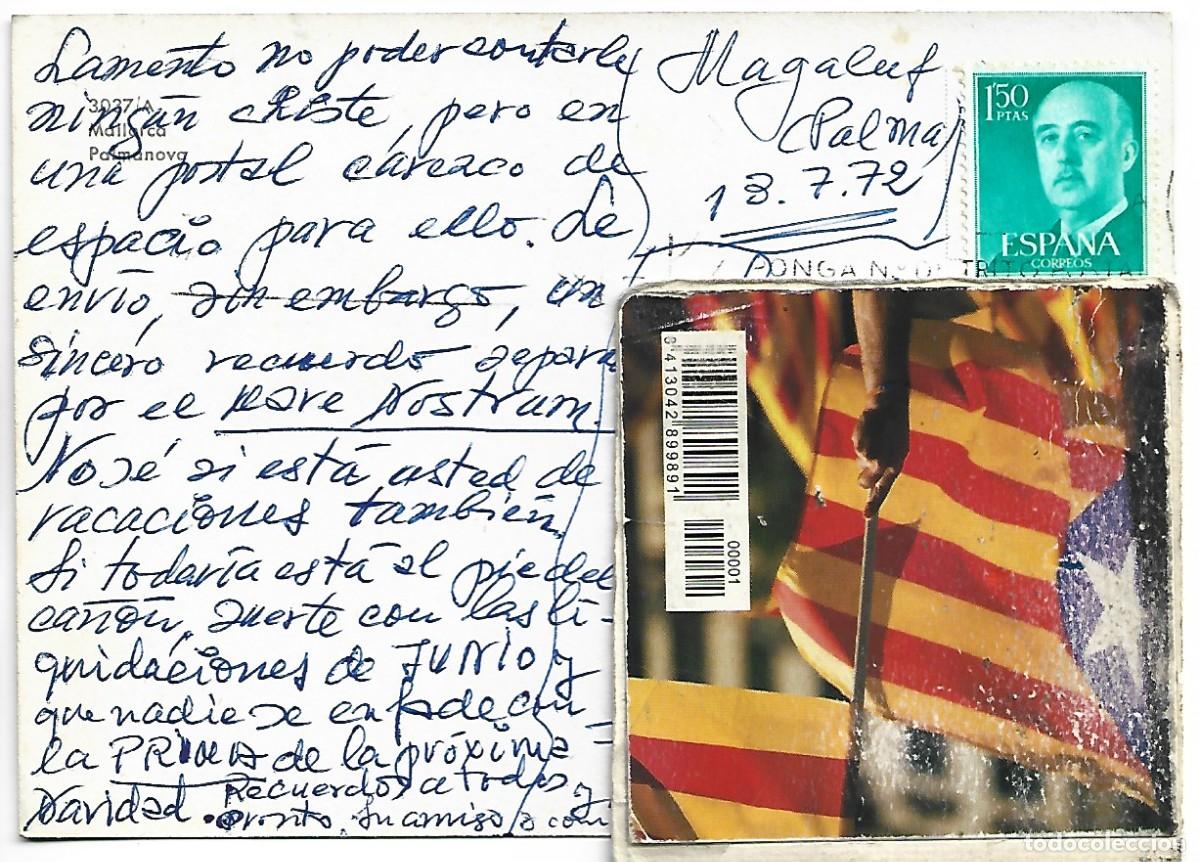 Lamento no poder contarle
ningún chiste, pero en
una postal carezco de
espacio para ello. Le
envío, sin embargo, un
sincero recuerdo
por el Mare Nostrum.
No sé si está usted de
vacaciones también.
Si todavía está al pie del
cañón, suerte con las li-
quidaciones de JUNIO y
que nadie se enfade con
la PRIMA de la próxima
Navidad. Recuerdos a todos y
pronto. Su amigo
3037/A
Mallorca
Palmanova
Magaluf
Palma
18.7.72
1'50
PTAS
ESPAÑA
CORREOS
PONGA
8413042899891
00001
todocoleccion